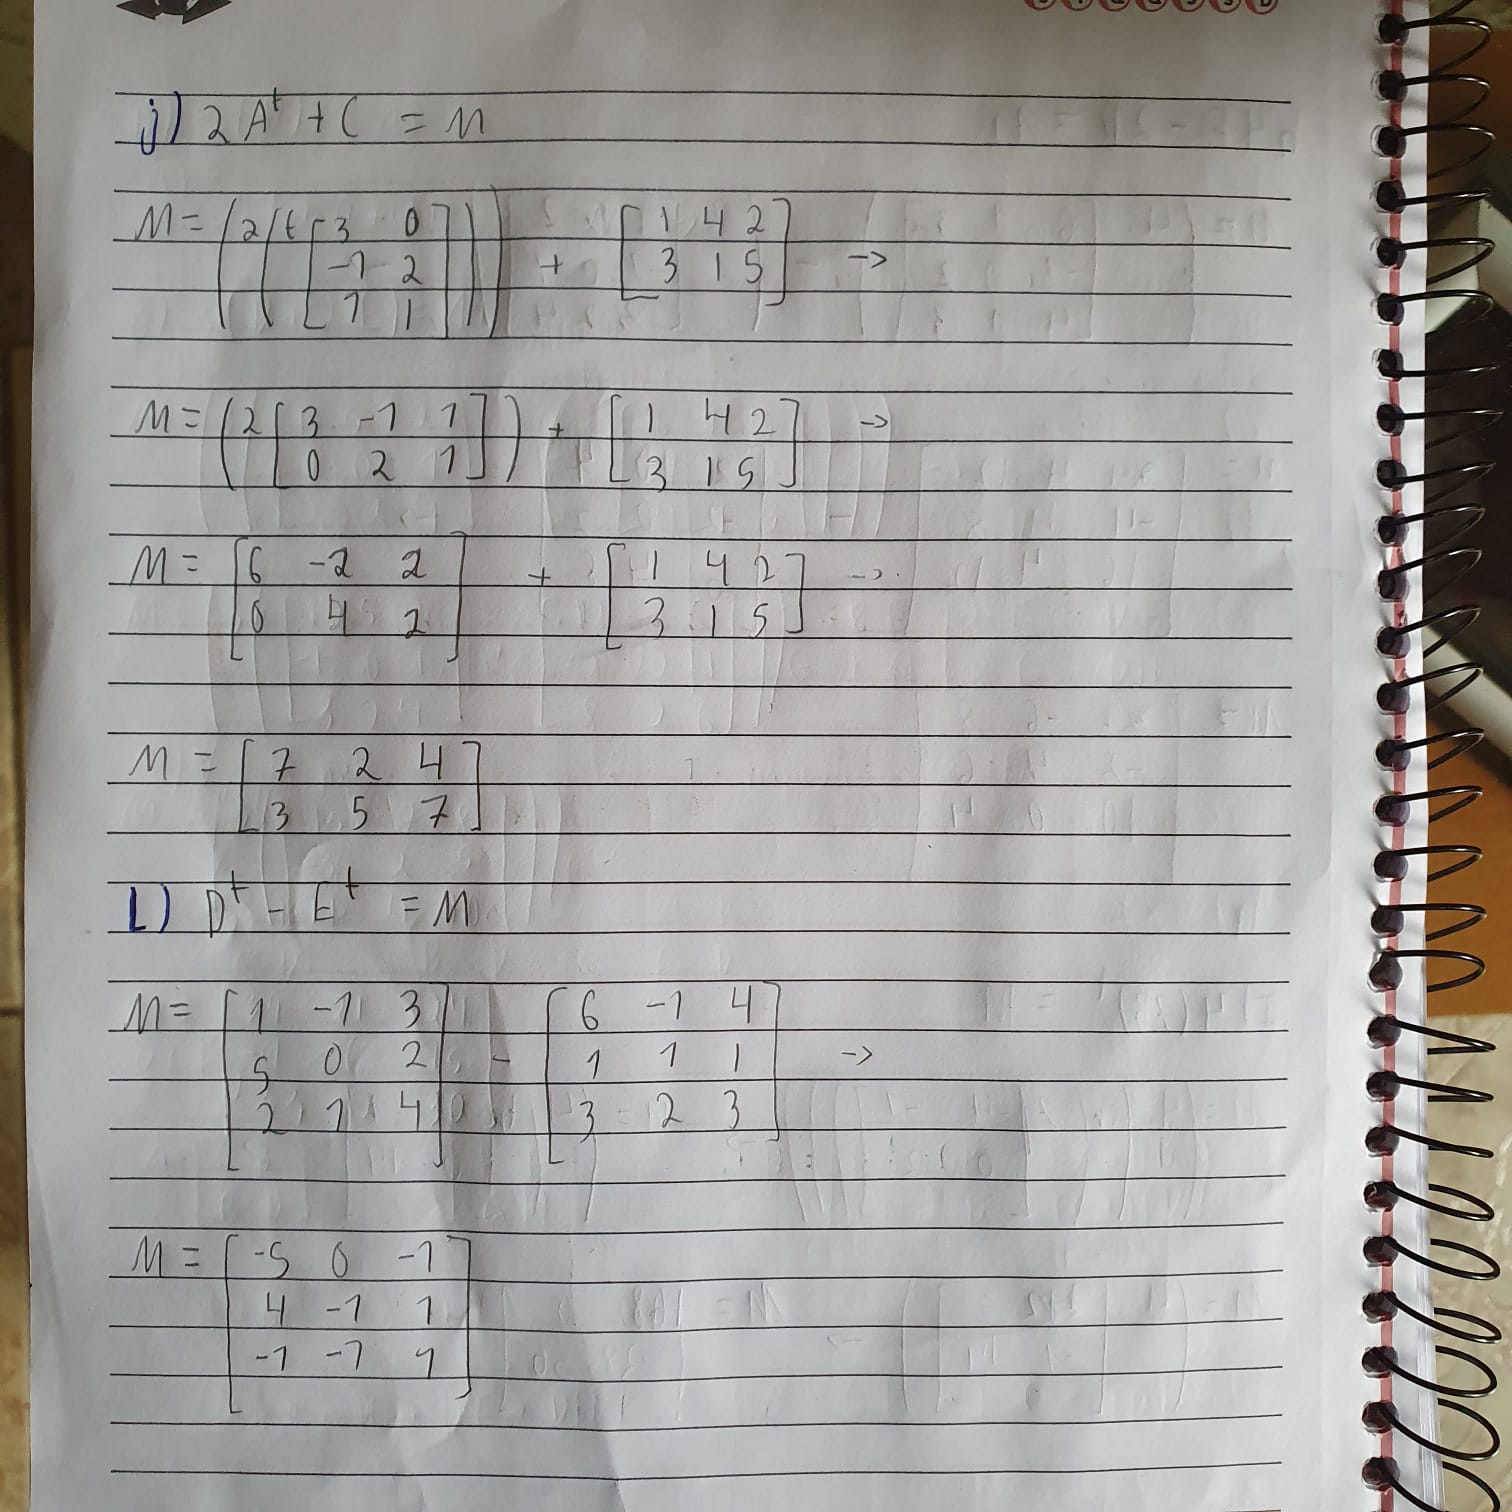 j) 2Aᵗ + C = M
M = (2(t[3 0
-1 2
1 1])) + [1 4 2
3 1 5] ->
M = (2[3 -1 1
0 2 1]) + [1 4 2
3 1 5] ->
M = [6 -2 2
0 4 2] + [1 4 2
3 1 5] ->
M = [7 2 4
3 5 7]
L) Dᵗ - Eᵗ = M
M = [1 -1 3
5 0 2
2 1 4] - [6 -1 4
1 1 1
3 2 3] ->
M = [-5 0 -1
4 -1 1
-1 -1 1]